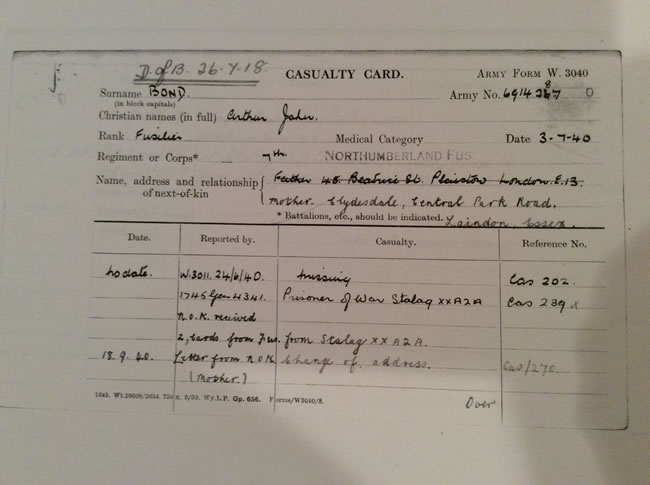 D.of B. 26.7.18.
CASUALTY CARD.
ARMY FORM W. 3040
Surname BOND.
(in block capitals)
Army No. 6914287 0
8
Christian names (in full) Arthur John.
Rank Fusilier
Medical Category
Date 3-7-40
Regiment or Corps* 7th NORTHUMBERLAND FUS.
Name, address and relationship of next-of-kin
Father 45 Beatrice St. Plaistow London. E.13.
Mother. Clydesdale, Central Park Road.
* Battalions, etc., should be indicated. Laindon, Essex.
Date. Reported by. Casualty. Reference No.
No date. W.3011. 24/6/40. Missing Cas 202.
1745 Gen 4341. Prisoner of War Stalag XXA2A Cas 239
N.O.K received
2, cards from Fus. from Stalag XXA2A.
18.9.40. Letter from N.O.K. Change of address. Cas/270.
(Mother.)
Forms/W3040/8.
Over